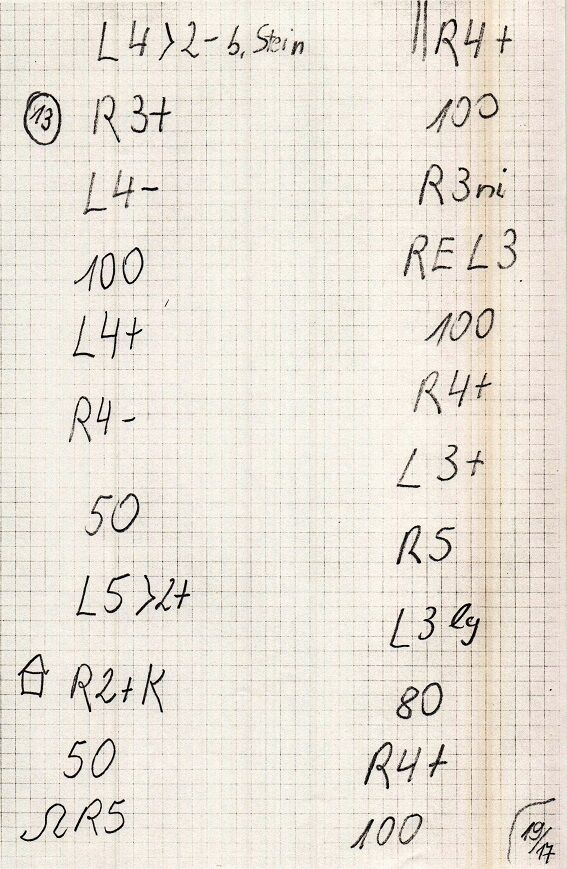 L4>2- b. Stein
13 R3+
L4-
100
L4+
R4-
50
L5>2+
R2+K
50
R5
R4+
100
R3ni
REL3
100
R4+
L3+
R5
L3lg
80
R4+
100
19/17